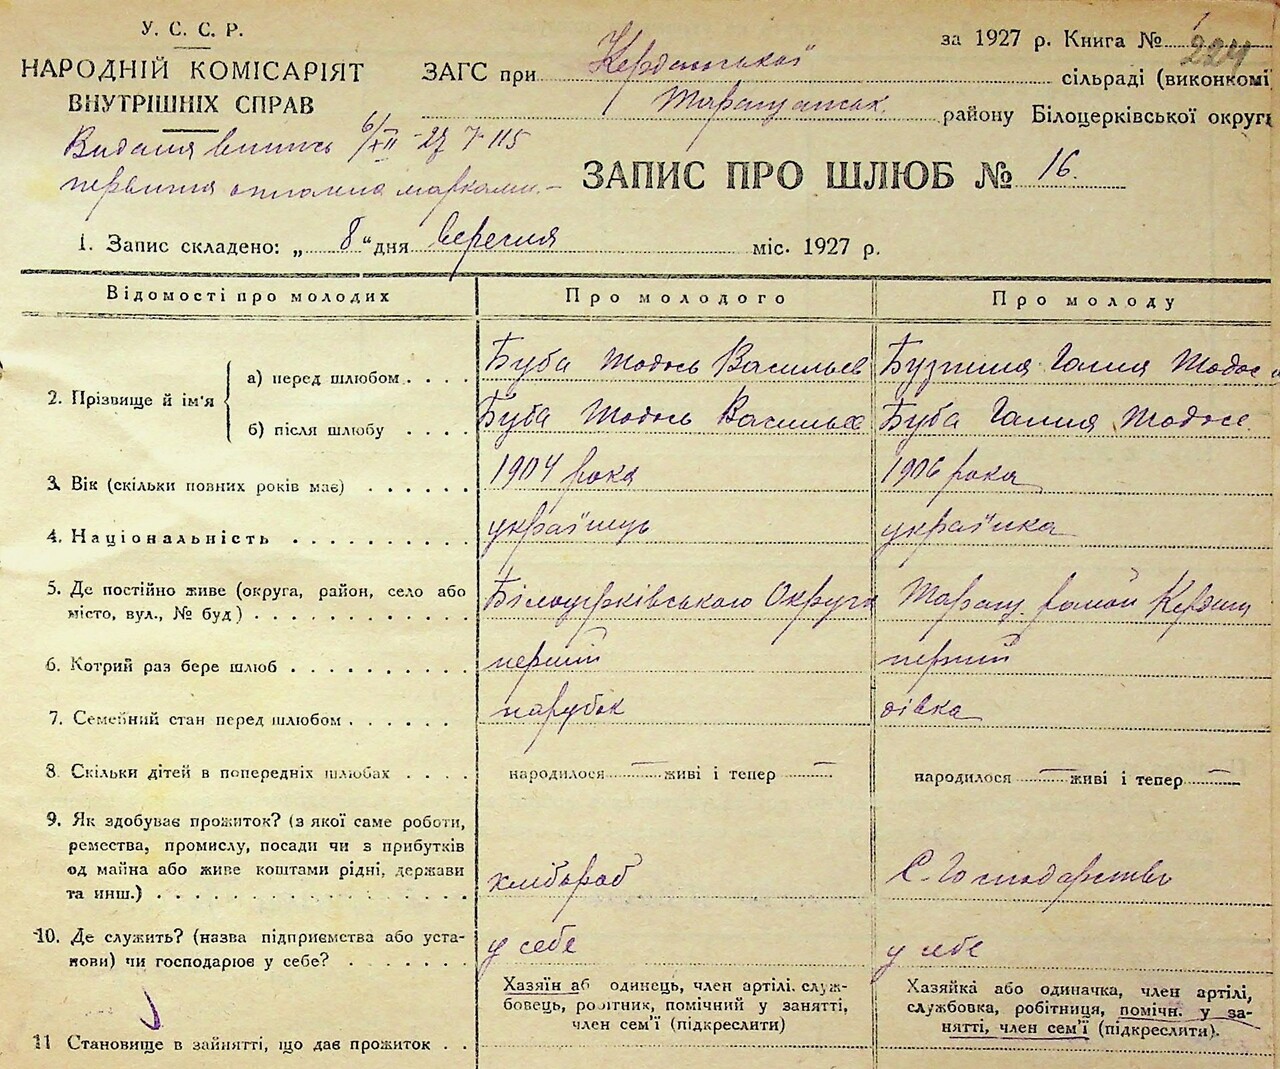 У. С. С. Р.
НАРОДНІЙ КОМІСАРІЯТ
ВНУТРІШНІХ СПРАВ
за 1927 р. Книга № 224
ЗАГС при Керданської сільраді (виконкомі
Таращанськ. району Білоцерківської округи
Видана випись 6/XII-27 115
первина оплачена марками.–
ЗАПИС ПРО ШЛЮБ № 16.
1. Запис складено: „ 8 “ дня вересня міс. 1927 р.
Відомості про молодих Про молодого Про молоду
2. Прізвище й ім'я
а) перед шлюбом . . . . Буба Тодось Васильев Бузиння Ганя Тодос
б) після шлюбу . . . . Буба Тодось Васильев Буба Ганя Тодосе.
3. Вік (скільки повних років має) . . . . . . 1904 рока 1906 рока
4. Національність . . . . . . . . . . українць українка
5. Де постійно живе (округа, район, село або
місто, вул., № буд) . . . . . . . . . . . . Білоцерківського Округа Таращ. район Кердан
6. Котрий раз бере шлюб . . . . . . . . . . перший перший
7. Семейний стан перед шлюбом . . . . . . парубок дівка
8. Скільки дітей в попередніх шлюбах . . . . народилося — живі і тепер — народилося — живі і тепер —
9. Як здобуває прожиток? (з якої саме роботи,
ремества, промислу, посади чи з прибутків
од майна або живе коштами рідні, держави
та инш.) . . . . . . . . . . . . . . . . . хлібороб С-Господарство
10. Де служить? (назва підприємства або уста-
нови) чи господарює у себе? . . . . . . . у себе у себе
Хазяїн аб одинець, член артілі, служ-
бовець, робітник, помічний у занятті,
член сем'ї (підкреслити)
Хазяйка або одиначка, член артілі,
службовка, робітниця, помічн. у за-
нятті, член сем'ї (підкреслити).
11 Становище в зайнятті, що дає прожиток . .